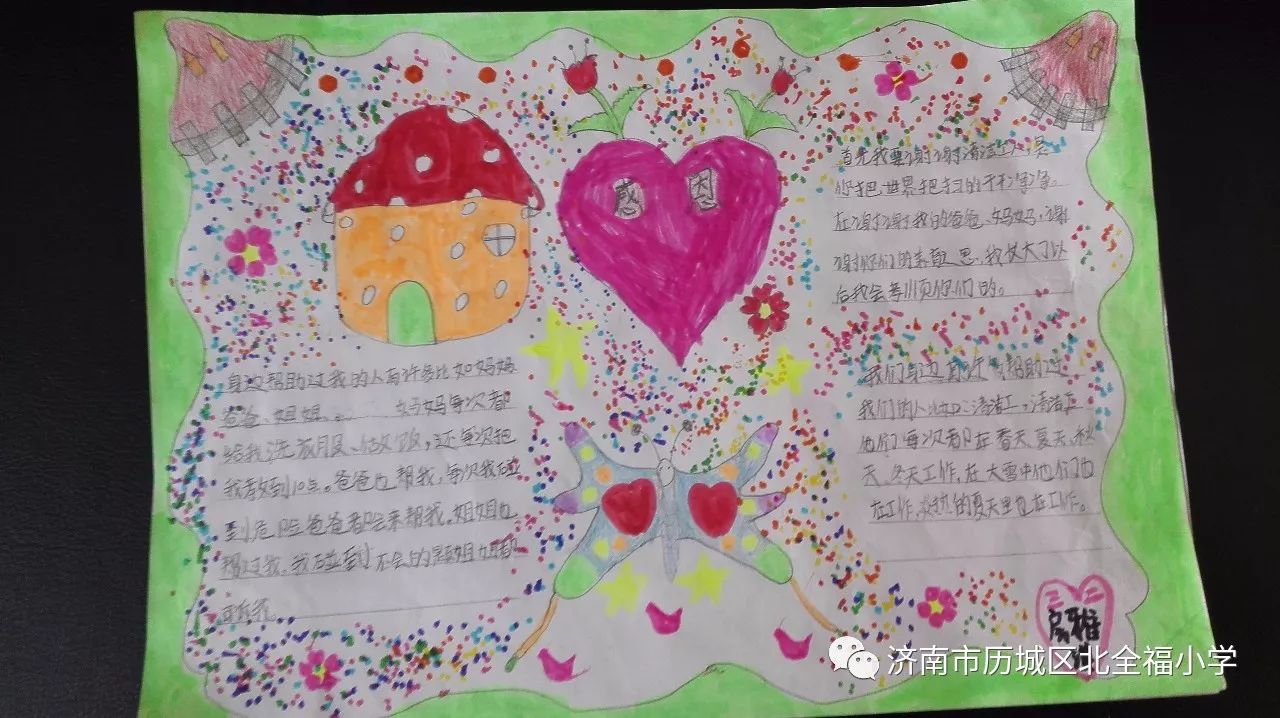 感恩
首先我要谢谢清洁工人,是
你把世界把扫的干干净净。
在谢谢我的爸爸、妈妈,谢
谢你们的养育之恩,我长大了以
后我会孝顺你们的。
身边帮助过我的人有许多比如妈妈
爸爸、姐姐。。 妈妈每次都
给我洗衣服、做饭,还每次把
我教到10点。爸爸也帮我,每次我碰
到危险爸爸都会来帮我,姐姐也
帮过我。我碰到不会的题姐姐都
我们身边有许多帮助过
我们的人比如:清洁工。清洁工
他们每次都在春天、夏天、秋
天、冬天工作,在大雪中他们也
在工作,炎热的夏天里也在工作。
三二
房雅
济南市历城区北全福小学